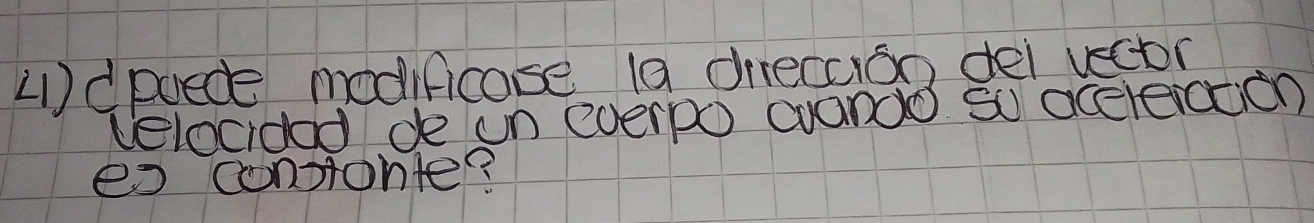 4) ¿puede modificarse la dirección del vector
velocidad de un cuerpo cuando su aceleración
es constante?